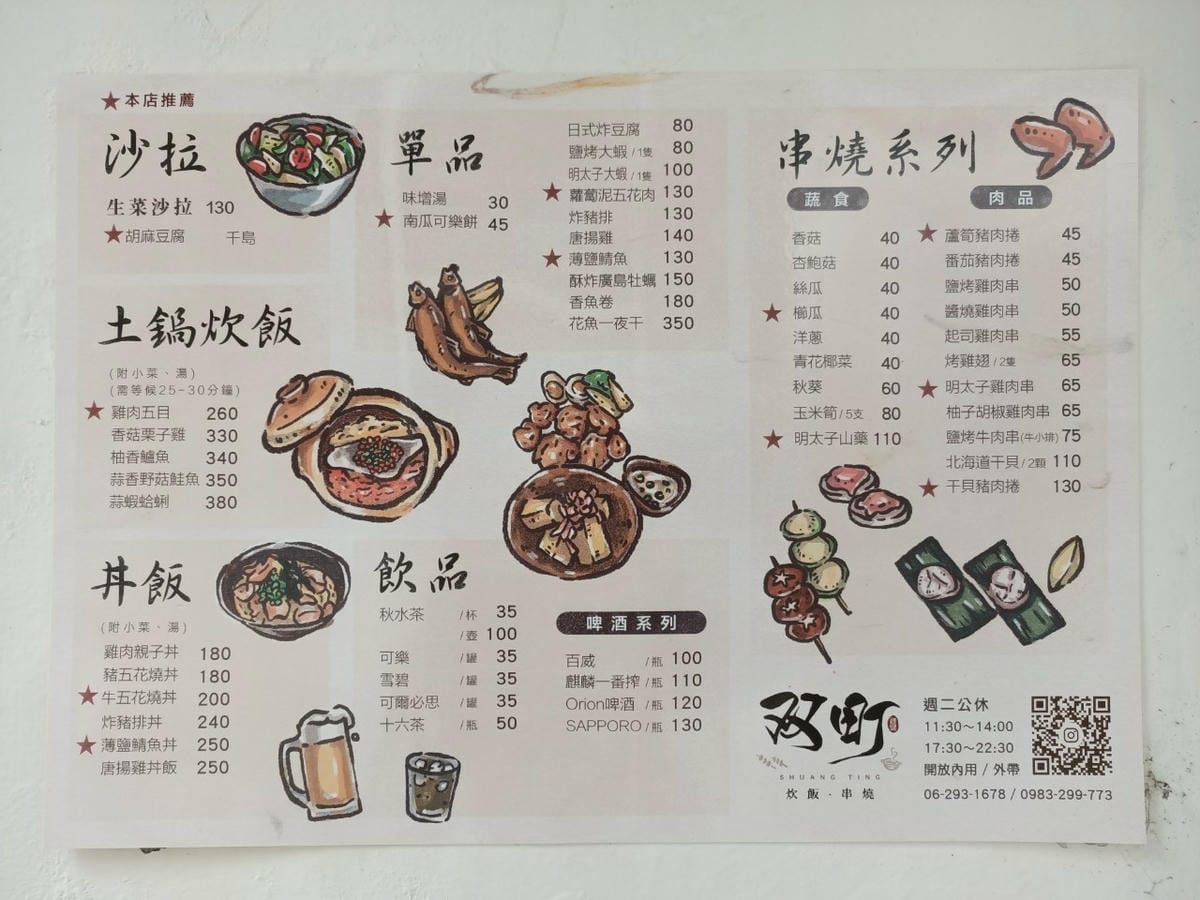 ★本店推薦
沙拉
生菜沙拉 130
★胡麻豆腐 千島
土鍋炊飯
(附小菜、湯)
(需等候25-30分鐘)
★雞肉五目 260
香菇栗子雞 330
柚香鱸魚 340
蒜香野菇鮭魚 350
蒜蝦蛤蜊 380
丼飯
(附小菜、湯)
雞肉親子丼 180
豬五花燒丼 180
★牛五花燒丼 200
炸豬排丼 240
★薄鹽鯖魚丼 250
唐揚雞丼飯 250
單品
味增湯 30
★南瓜可樂餅 45
日式炸豆腐 80
鹽烤大蝦/1隻 80
明太子大蝦/1隻 100
★蘿蔔泥五花肉 130
炸豬排 130
唐揚雞 140
★薄鹽鯖魚 130
酥炸廣島牡蠣 150
香魚卷 180
花魚一夜干 350
飲品
秋水茶 /杯 35
/壺 100
可樂 /罐 35
雪碧 /罐 35
可爾必思 /罐 35
十六茶 /瓶 50
啤酒系列
百威 /瓶 100
麒麟一番搾 /瓶 110
Orion啤酒 /瓶 120
SAPPORO /瓶 130
串燒系列
蔬食
香菇 40
杏鮑菇 40
絲瓜 40
★櫛瓜 40
洋蔥 40
青花椰菜 40
秋葵 60
玉米筍/5支 80
★明太子山藥 110
肉品
★蘆筍豬肉捲 45
番茄豬肉捲 45
鹽烤雞肉串 50
醬燒雞肉串 50
起司雞肉串 55
烤雞翅/2隻 65
★明太子雞肉串 65
柚子胡椒雞肉串 65
鹽烤牛肉串(牛小排) 75
北海道干貝/2顆 110
★干貝豬肉捲 130
双町
SHUANG TING
炊飯·串燒
週二公休
11:30～14:00
17:30～22:30
開放內用 / 外帶
06-293-1678 / 0983-299-773